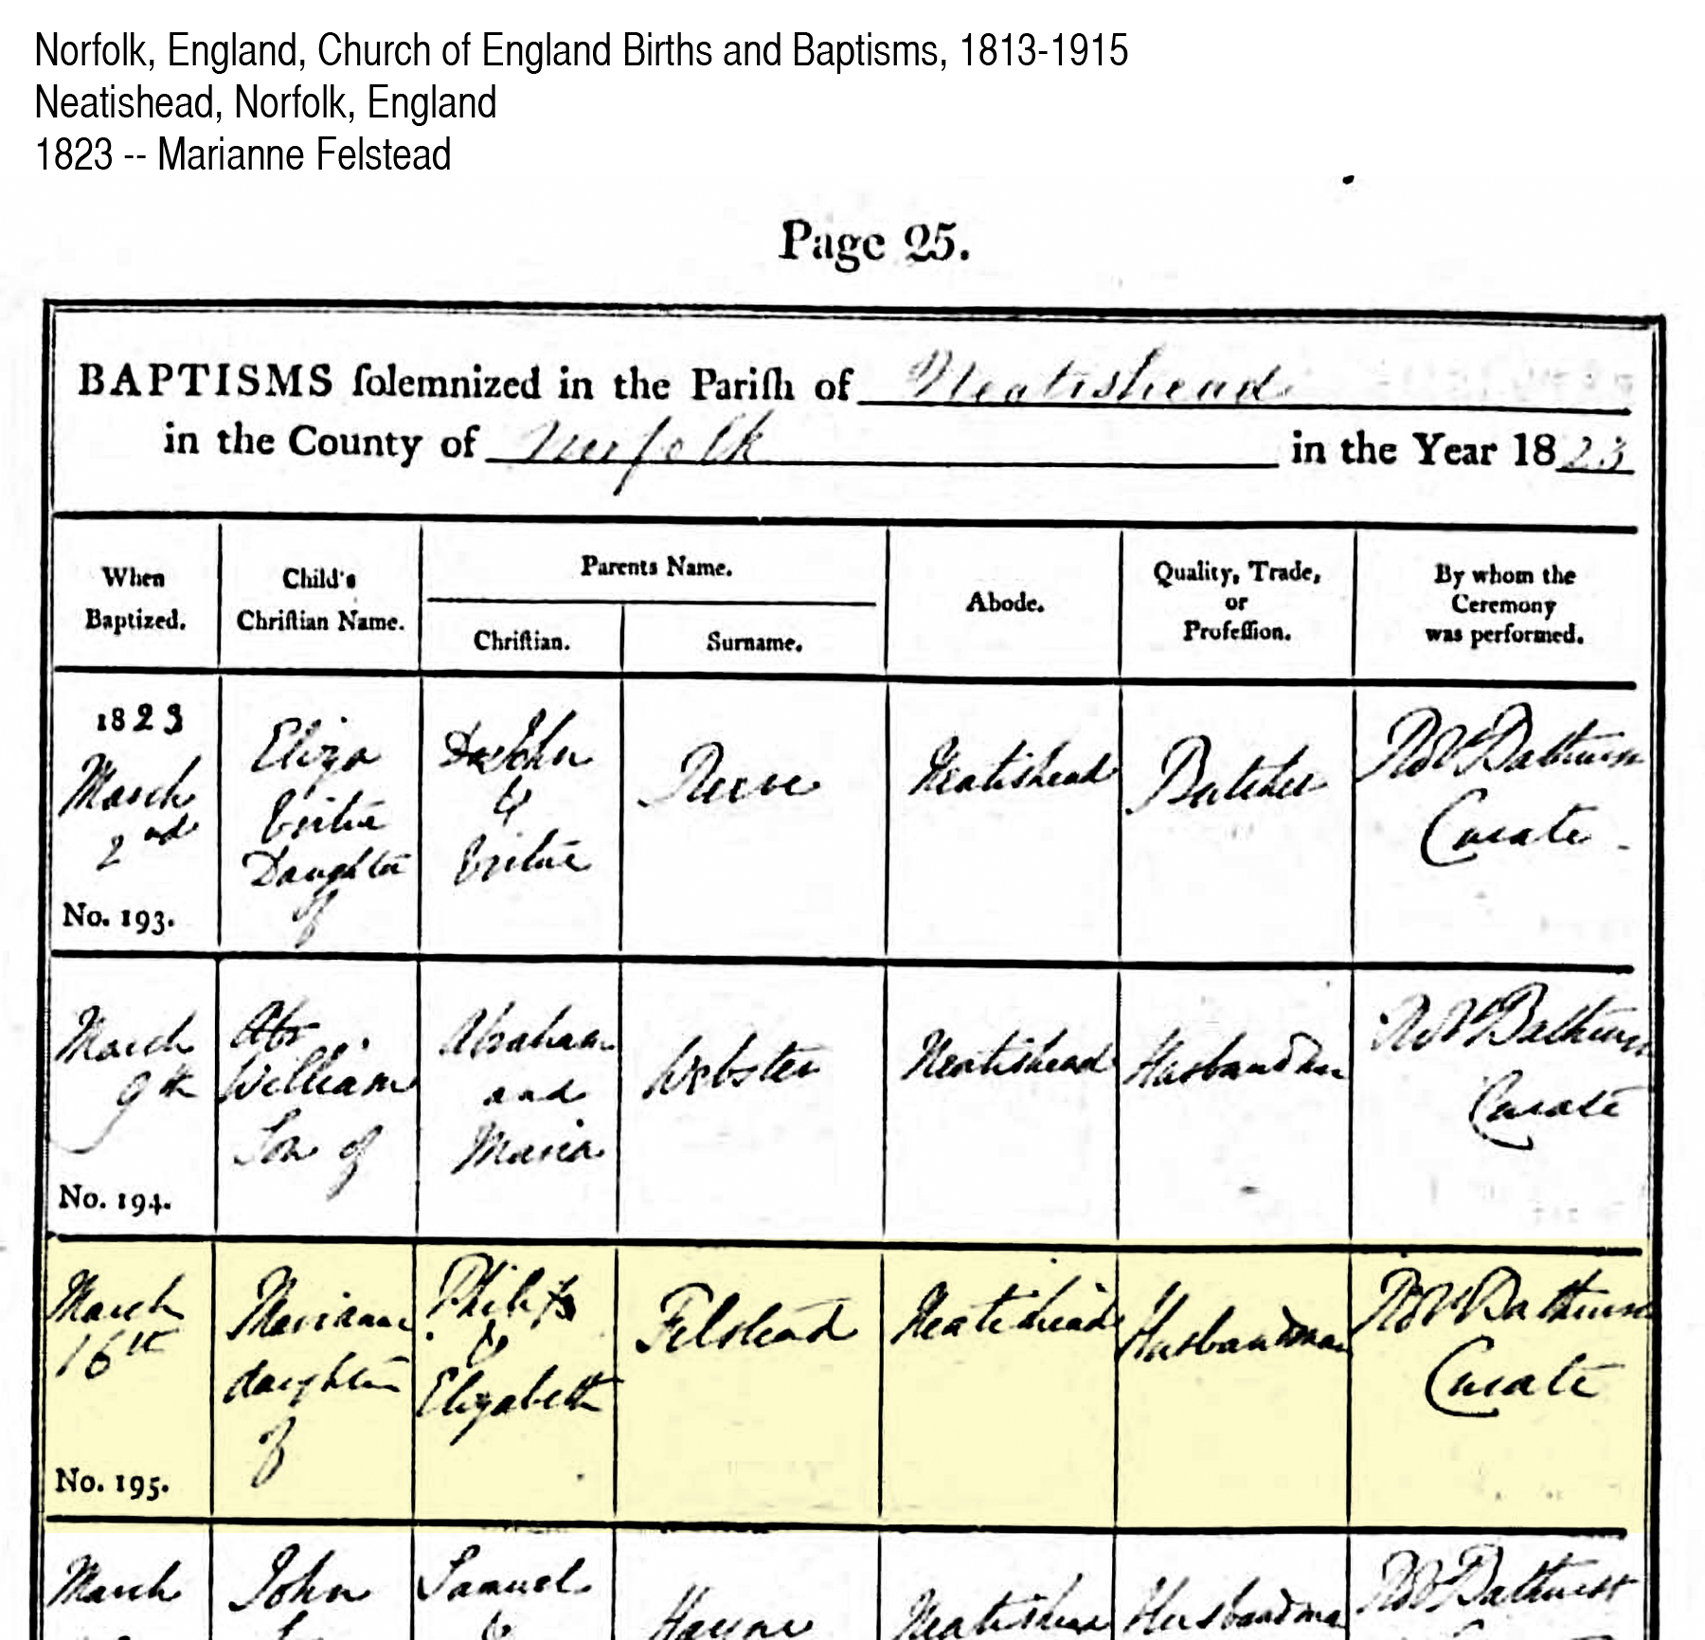 Norfolk, England, Church of England Births and Baptisms, 1813-1915
Neatishead, Norfolk, England
1823 -- Marianne Felstead
Page 25.
BAPTISMS ſolemnized in the Pariſh of Neatishead
in the County of Norfolk in the Year 1823
When
Baptized.
Child's
Chriſtian Name.
Parents Name.
Chriſtian.
Surname.
Abode.
Quality, Trade,
or
Profeſſion.
By whom the
Ceremony
was performed.
1823
March
2nd
No. 193.
Eliza
Virtue
Daughter
of
John
&
Virtue
Reeve
Neatishead
Butcher
Bathurst
Curate
March
9th
No. 194.
Abr
William
Son of
Abraham
and
Maria
Webster
Neatishead
Husbandman
Bathurst
Curate
March
16th
No. 195.
Marianne
daughter
of
Philip
&
Elizabeth
Felstead
Neatishead
Husbandman
Bathurst
Curate
March
John
Samuel
&
Hayne
Neatishead
Husbandman
Bathurst